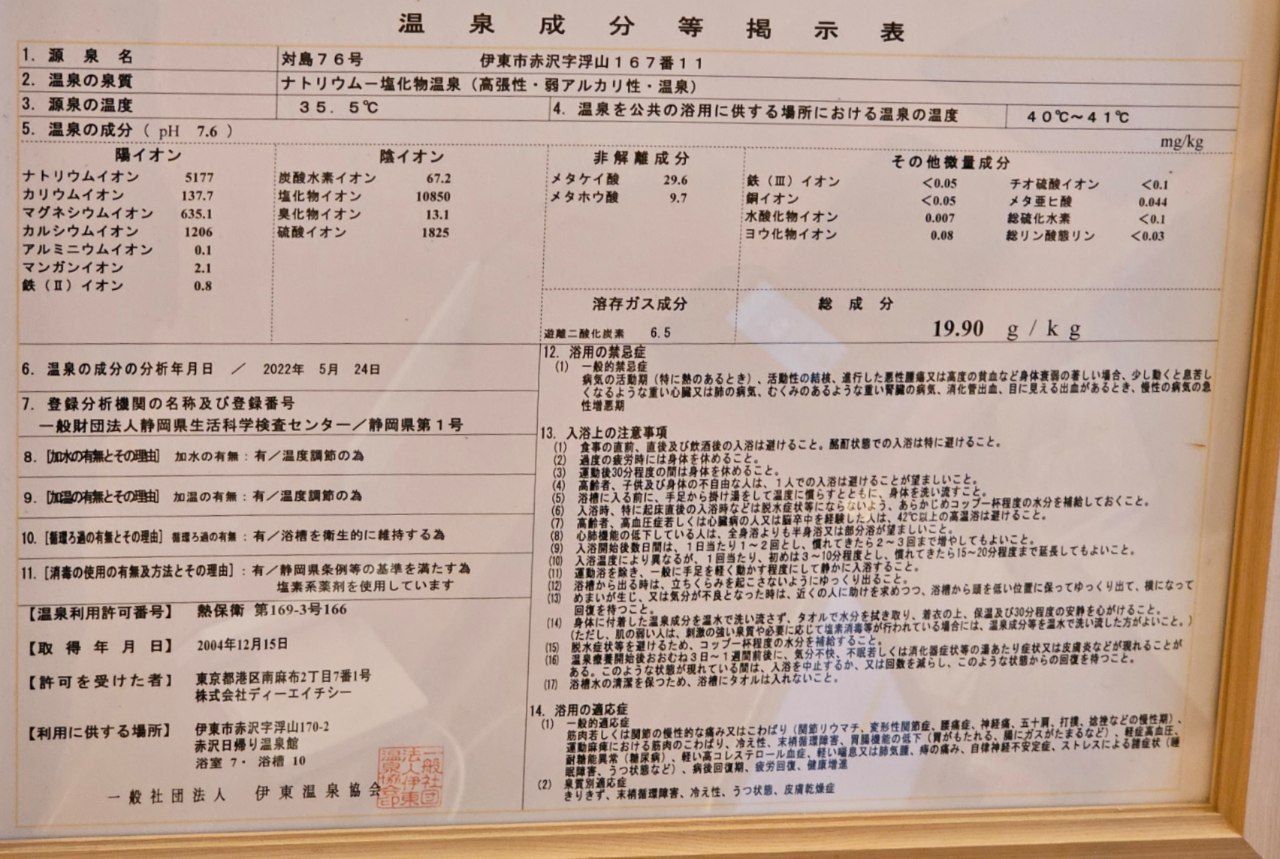 温泉成分等掲示表
1. 源泉名 対島76号 伊東市赤沢字浮山167番11
2. 温泉の泉質 ナトリウム－塩化物温泉（高張性・弱アルカリ性・温泉）
3. 源泉の温度 35.5℃ 4. 温泉を公共の浴用に供する場所における温泉の温度 40℃～41℃
5. 温泉の成分（pH 7.6） mg/kg
陽イオン 陰イオン 非解離成分 その他微量成分
ナトリウムイオン 5177 炭酸水素イオン 67.2 メタケイ酸 29.6 鉄（Ⅲ）イオン <0.05 チオ硫酸イオン <0.1
カリウムイオン 137.7 塩化物イオン 10850 メタホウ酸 9.7 銅イオン <0.05 メタ亜ヒ酸 0.044
マグネシウムイオン 635.1 臭化物イオン 13.1 水酸化物イオン 0.007 総硫化水素 <0.1
カルシウムイオン 1206 硫酸イオン 1825 ヨウ化物イオン 0.08 総リン酸態リン <0.03
アルミニウムイオン 0.1
マンガンイオン 2.1
鉄（Ⅱ）イオン 0.8
溶存ガス成分 総成分
遊離二酸化炭素 6.5 19.90 g/kg
6. 温泉の成分の分析年月日 ／ 2022年 5月 24日
7. 登録分析機関の名称及び登録番号
一般財団法人静岡県生活科学検査センター／静岡県第1号
8. [加水の有無とその理由] 加水の有無：有／温度調節の為
9. [加温の有無とその理由] 加温の有無：有／温度調節の為
10. [循環ろ過の有無とその理由] 循環ろ過の有無：有／浴槽を衛生的に維持する為
11. [消毒の使用の有無及方法とその理由]：有／静岡県条例等の基準を満たす為
塩素系薬剤を使用しています
【温泉利用許可番号】 熱保衛 第169-3号166
【取得年月日】 2004年12月15日
【許可を受けた者】 東京都港区南麻布2丁目7番1号
株式会社ディーエイチシー
【利用に供する場所】 伊東市赤沢字浮山170-2
赤沢日帰り温泉館
浴室 7・ 浴槽 10
一般社団法人 伊東温泉協会
一般社団法人伊東温泉協会印
12. 浴用の禁忌症
(1) 一般的禁忌症
病気の活動期（特に熱のあるとき）、活動性の結核、進行した悪性腫瘍又は高度の貧血など身体衰弱の著しい場合、少し動くと息苦し
くなるような重い心臓又は肺の病気、むくみのあるような重い腎臓の病気、消化管出血、目に見える出血があるとき、慢性の病気の急
性増悪期
13. 入浴上の注意事項
(1) 食事の直前、直後及び飲酒後の入浴は避けること。酩酊状態での入浴は特に避けること。
(2) 過度の疲労時には身体を休めること。
(3) 運動後30分程度の間は身体を休めること。
(4) 高齢者、子供及び身体の不自由な人は、1人での入浴は避けることが望ましいこと。
(5) 浴槽に入る前に、手足から掛け湯をして温度に慣らすとともに、身体を洗い流すこと。
(6) 入浴時、特に起床直後の入浴時などは脱水症状等にならないよう、あらかじめコップ一杯程度の水分を補給しておくこと。
(7) 高齢者、高血圧症若しくは心臓病の人又は脳卒中を経験した人は、42℃以上の高温浴は避けること。
(8) 心肺機能の低下している人は、全身浴よりも半身浴又は部分浴が望ましいこと。
(9) 入浴開始後数日間は、1日当たり1～2回とし、慣れてきたら2～3回まで増やしてもよいこと。
(10) 入浴温度により異なるが、1回当たり、初めは3～10分程度とし、慣れてきたら15～20分程度まで延長してもよいこと。
(11) 運動浴を除き、一般に手足を軽く動かす程度にして静かに入浴すること。
(12) 浴槽から出る時は、立ちくらみを起こさないようにゆっくり出ること。
(13) めまいが生じ、又は気分が不良となった時は、近くの人に助けを求めつつ、浴槽から頭を低い位置に保ってゆっくり出て、横になって
回復を待つこと。
(14) 身体に付着した温泉成分を温水で洗い流さず、タオルで水分を拭き取り、着衣の上、保温及び30分程度の安静を心がけること。
（ただし、肌の弱い人は、刺激の強い泉質や必要に応じて塩素消毒等が行われている場合には、温泉成分等を温水で洗い流した方がよいこと。）
(15) 脱水症状等を避けるため、コップ一杯程度の水分を補給すること。
(16) 温泉療養開始後おおむね3日～1週間前後に、気分不快、不眠若しくは消化器症状等の湯あたり症状又は皮膚炎などが現れることが
ある。このような状態が現れている間は、入浴を中止するか、又は回数を減らし、このような状態からの回復を待つこと。
(17) 浴槽水の清潔を保つため、浴槽にタオルは入れないこと。
14. 浴用の適応症
(1) 一般的適応症
筋肉若しくは関節の慢性的な痛み又はこわばり（関節リウマチ、変形性関節症、腰痛症、神経痛、五十肩、打撲、捻挫などの慢性期）、
運動麻痺における筋肉のこわばり、冷え性、末梢循環障害、胃腸機能の低下（胃がもたれる、腸にガスがたまるなど）、軽症高血圧、
耐糖能異常（糖尿病）、軽い高コレステロール血症、軽い喘息又は肺気腫、痔の痛み、自律神経不安定症、ストレスによる諸症状（睡
眠障害、うつ状態など）、病後回復期、疲労回復、健康増進
(2) 泉質別適応症
きりきず、末梢循環障害、冷え性、うつ状態、皮膚乾燥症